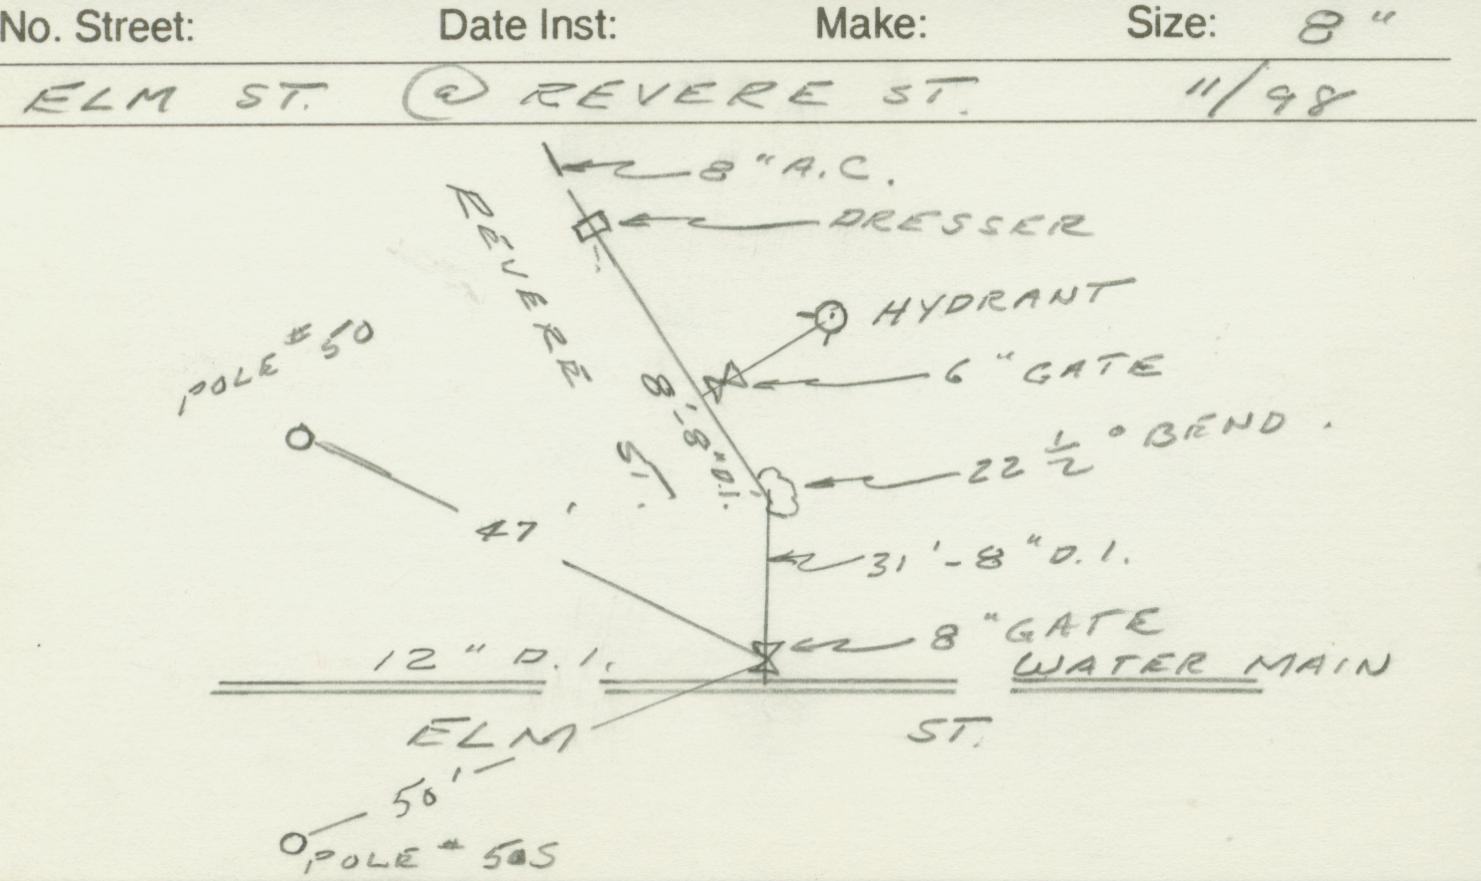 No. Street: Date Inst: Make: Size: 8"
ELM ST. @ REVERE ST. 11/98
8" A.C.
DRESSER
REVERE ST.
HYDRANT
POLE #50
6" GATE
8'-8" D.I.
22 1/2° BEND.
47'
31'-8" D.I.
8" GATE
12" D.I.
WATER MAIN
ELM ST.
50'
POLE # 50S